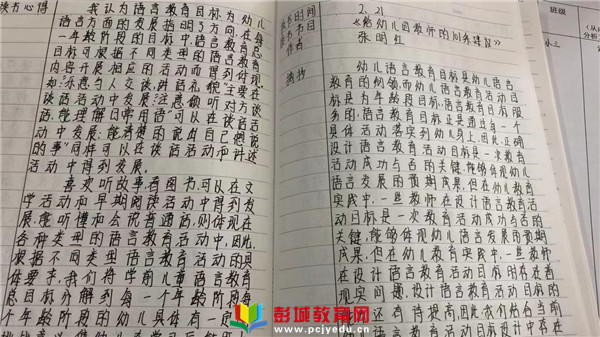 读书心得
我认为语言教育目标为幼儿
语言方面的发展指明了方向,在每
一年龄阶段的目标中,语言教育总
目标可根据不同类型的语言教育
内容开展相应的活动而得到体现
如:"乐意与人交谈,讲话礼貌"主要在
谈话活动中发展;"注意倾听对方讲
话,能理解日常用语"可以在谈话活
动中发展,"能清楚的说出自己想说
的事"同样可以在谈话活动和讲述
活动中得到发展。
喜欢听故事看图书,可以在文
学活动和早期阅读活动中得到发
展,能听懂和会说普通话,则体现在
各种类型的语言教育活动中,因此,
根据不同类型语言教育活动的具
体要求,我们将学前儿童语言教育
总目标分解到每一个年龄阶段,每
个年龄阶段的幼儿具体有一定
读书时间
2.21
书目
《给幼儿园教师的101条建议》
作者
张明红
摘抄
幼儿语言教育目标是幼儿语言
教育的纲领,而幼儿语言教育活动目
标是为年龄段目标,语言教育目标服
务的,语言教育目标正是通过每一个
具体活动落实到幼儿身上,因此,正确
设计语言教育活动目标是一次教育
活动成功与否的关键,能够体现幼儿
语言发展的预期成果,但在幼儿教育
实践中,一些教师在设计语言教育活
动目标是一次教育活动成功与否的
关键,能够体现幼儿语言发展的预期
成果,但在幼儿教育实践中,一些教师
在设计语言教育活动目标时存在着
现实问题,设计语言教育活动目标
还有待提高,因此我们结合当前
幼儿语言教育活动目标设计中存在
班级
小三
彭城教育网
www.pcjyedu.cn